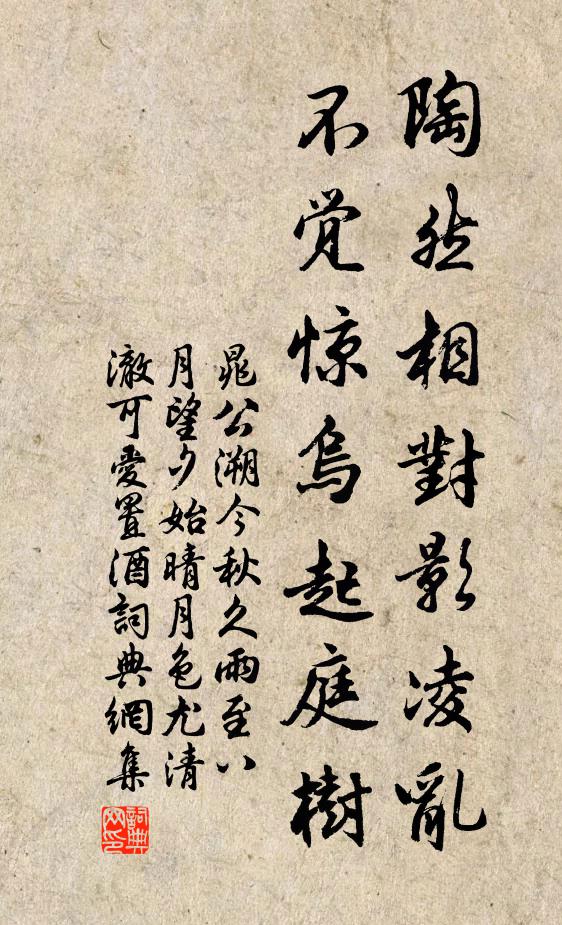 陶然相對影凌亂
不觉惊烏起庭樹
晁公溯今秋久雨至八
月望夕始晴月色尤清
澈可愛置酒詞典網集
詞典
网印